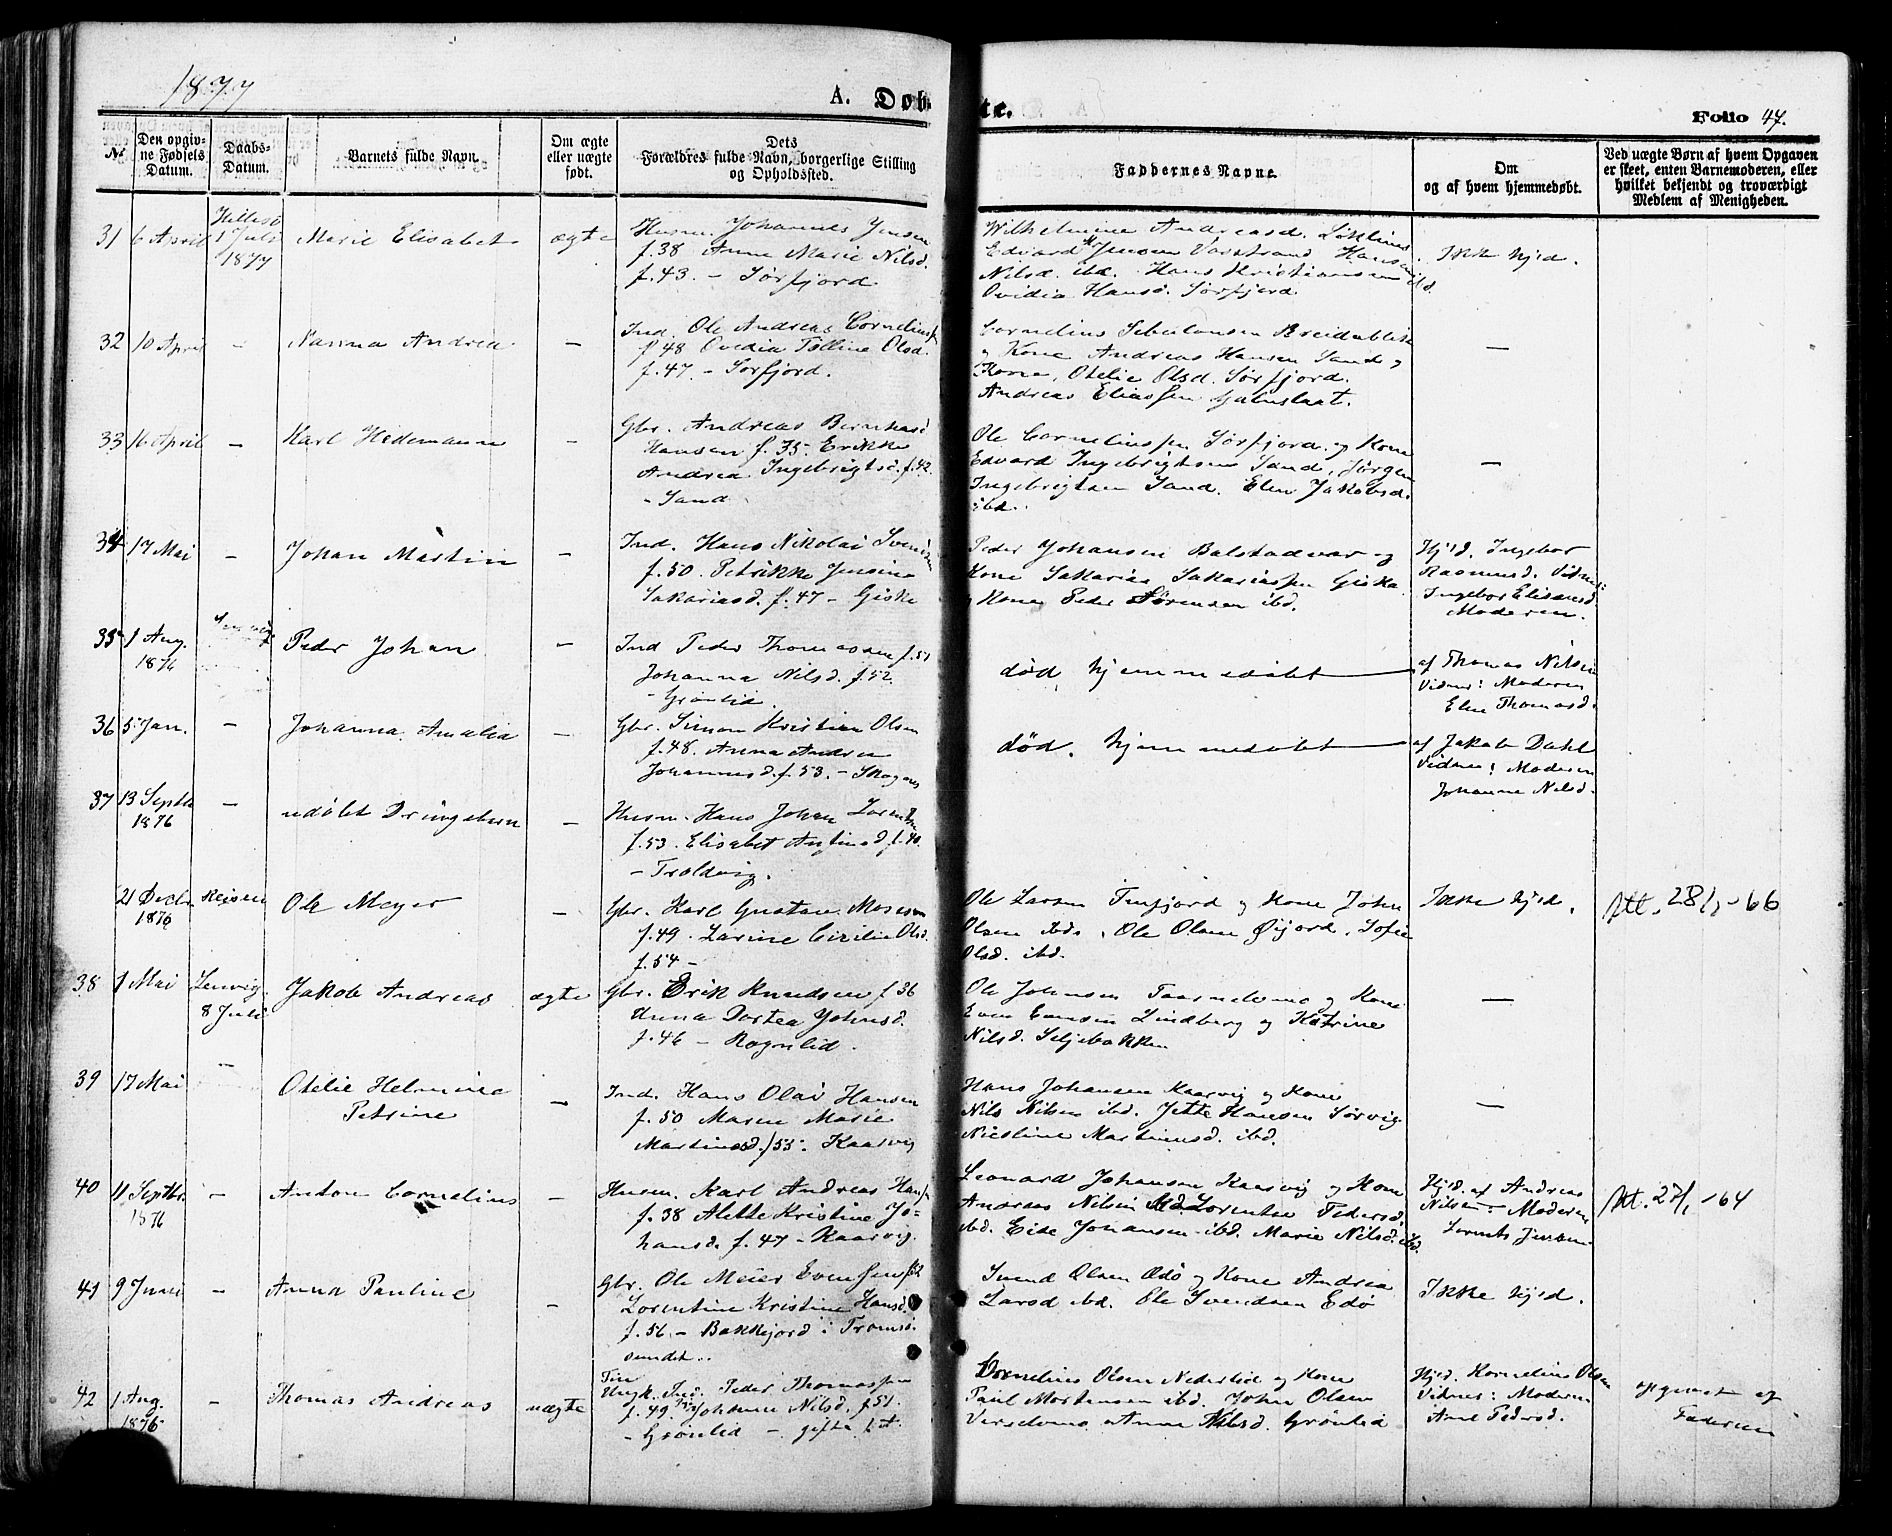 1877
A. Døbte.
Folio 47.
No
Den opgiv-
ne Fødsels
Datum.
Daabs-
Datum.
Barnets fulde Navn.
Om ægte
eller uægte
født.
Dets
Forældres fulde Navn, borgerlige Stilling
og Opholdssted.
Faddernes Navne.
Om
og af hvem hjemmedøbt.
Ved uægte Børn af hvem Opgaven
er skeet, enten Barnemoderen, eller
hvilket bekjendt og troværdigt
Medlem af Menigheden.
31 6 April Hillesø
1 Juli
1877
Marie Elisabet ægte
Husm. Johannes Jensen
f. 38 Anne Marie Nilsd.
f. 43. - Sørfjord
Wilhelmine Andreasd.
Edvard Jensen Hansine
Nilsd. ibd. Hans Kristiansen ibd.
Ovidia Hansd. Sørfjord.
Ikke hjd.
32 10 April - Nanna Andrea -
Ind. Ole Andreas Cornelius
f. 48 Ovidia Tolline Olsd.
f. 47. - Sørfjord.
Cornelius
og Kone Andreas Hansen Sand og
Kone, Otelie Olsd. Sørfjord.
Andreas Eliassen
-
33 16 April - Karl Hedemann -
Gbr. Andreas Bernhard
Hansen f. 35- Erikke
Andrea Ingebrigtsd. f. 42
- Sand
Ole Corneliussen Sørfjord. og Kone
Edvard Ingebrigtsen Sand, Jørgen
Ingebrigtsen Sand. Elen Jakobsd.
ibd.
-
34 17 Mai - Johan Martin -
Ind. Hans Nikolai Svendsen
f. 50. Petrikke Jensine
Sakariasd. f. 47 - Giske
Peder Johansen Balstadvar og
Kone Sakarias Sakariassen Giska
og Kone Peder Sørensen ibd.
Hjd. Ingebor
Rasmusd. Vidner:
Ingebor Eliasd.
Moderen.
35 1 Aug.
1876
Peder Johan -
Ind Peder Thomassen f. 51
Johanna Nilsd. f. 52.
- Grønlid.
død, hjemmedøbt
af Thomas Nilsen
Vidner: Moderen
Elen Thomasd.
36 5 Jan. - Johanna Amalia -
Gbr. Simon Kristian Olsen
f. 48. Anna Andrea
Johannesd. f. 53. - Skogen
død. hjemmedøbt
af Jakob Dahl
Vidner: Moderen
Johanne Nilsd.
37 13 Septb.
1876
- udøbt Drengebarn -
Husm. Hans Johan Lorentsen
f. 53. Elisabet f. 40.
- Troldvig.
21 Decbr.
1876
Reisen Ole Meyer -
Gbr. Karl Gustav Mosesen
f. 49. Larine Cicilie Olsd.
f. 54 -
Ole Larsen Tinfjord og Kone John
Olsen ibd. Ole Olsen Øijord, Sofie
Olsd. ibd.
Ikke hjd.
Att. 28/1-66
38 1 Mai Lenvig.
8 Juli
Jakob Andreas ægte
Gbr. Erik Knudsen f. 36
Anna Dortea Johnsd.
f. 46 - Rognlid.
Ole Johnsen og Kone
Even Evensen Lindberg og Katrine
Nilsd. Seljebakken
-
39 17 Mai - Otelie Helmine
Petrine -
Ind. Hans Olai Hansen
f. 50 Maren Marie
Martinusd. f 55. Kaarvig
Hans Johansen Kaarvig og Kone
Nils Nilsen ibd. Jette Hansen Sørvig
Nicoline Martinusd. ibd.
-
40 11 Septbr.
1876
- Anton Cornelius -
Husm. Karl Andreas Hansen
f. 38 Alette Kristine Jo-
hansd. f. 47 - Kaarvig.
Leonard Johansen Kaarvig og Kone
Andreas Nilsen Lorentse Pedersd.
ibd. Eide Johansen ibd. Marie Nilsd. ibd.
Hjd. af Andreas
Nilsen: Moderen
Lorents Jensen
Att. 27/1-64
41 9 Juni - Anna Pauline -
Gbr. Ole Meier Evensen f 52
Lorentine Kristine Hansd.
f. 56. - Bakkejord i Tromsø-
sundet.
Svend Olsen Edø og Kone Andrea
Larsd ibd. Ole Svendsen Edø
Ikke hjd.
42 1 Aug.
1876
- Thomas Andreas uægte
Ungk. Ind. Peder Thomassen
f. 49. Johanna Nilsd. f. 51.
- Grønlid - gifte
Cornelius Olsen Nederlid og Kone
Paul Mortensen ibd. John Olsen
Anne Nilsd. Grønlid
Hjd. Kornelius Olsen
Vidner: Moderen
Ane Pedersd.
opgivet af
Faderen